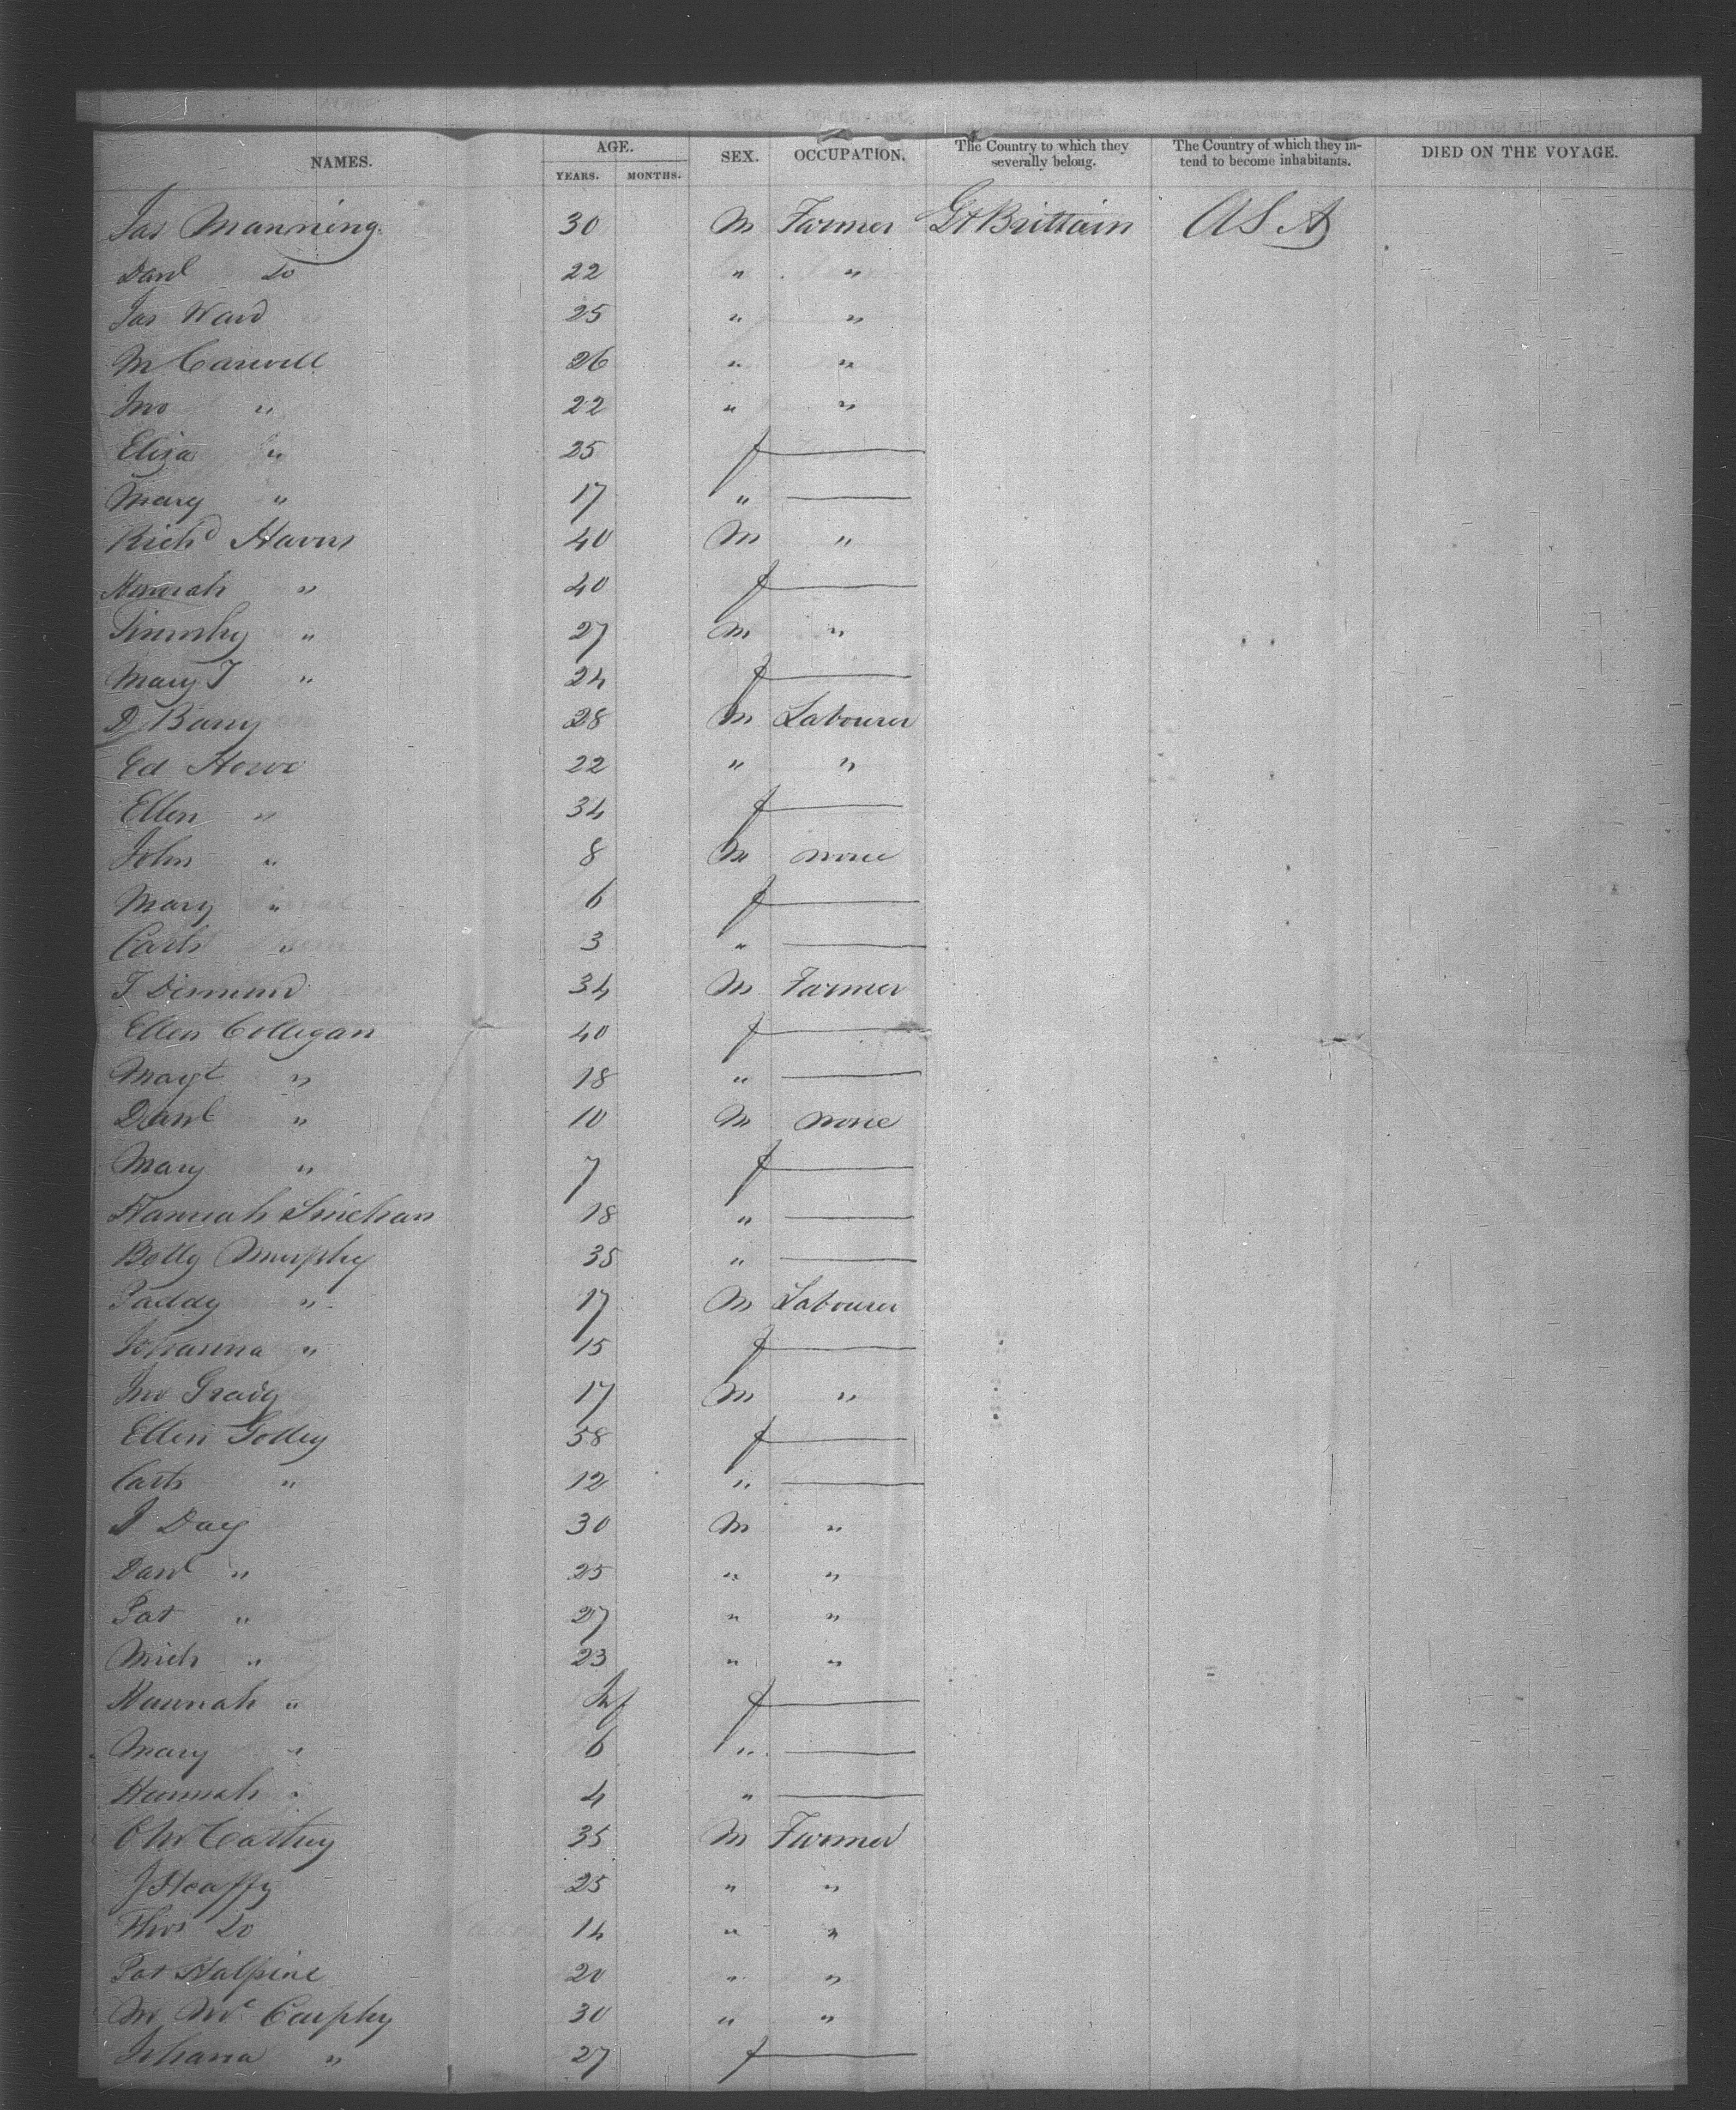 NAMES. AGE. SEX. OCCUPATION. The Country to which they severally belong. The Country of which they intend to become inhabitants. DIED ON THE VOYAGE.
YEARS. MONTHS.
Jas Manning 30 M Farmer Gt Brittain USA
Danl Do 22 " "
Jas Ward 25 " "
M Carwell 26 " "
Jno " 22 " "
Eliza " 25 f —
Mary " 17 " —
Richd Havns 40 M "
Honorah " 40 f —
Timothy " 27 M "
Mary J " 24 f —
D Barry 28 M Labourer
Ed Howe 22 " "
Ellen " 34 f —
John " 8 M none
Mary " 6 f —
Cath " 3 " —
J Dimund 34 M Farmer
Ellen Colligan 40 f —
Magt " 18 " —
Danl " 10 M none
Mary " 7 f —
Hannah Linehan 18 " —
Betty Murphy 35 " —
Paddy " 17 M Labourer
Johanna " 15 f —
Jno Grady 17 M "
Ellen Golley 38 f —
Cath " 12 " —
J Day 30 M "
Danl " 25 " "
Pat " 27 " "
Mich " 23 " "
Hannah " Inf f —
Mary " 6 " —
Hannah " 4 " —
C McCarthy 35 M Farmer
J Heaffy 25 " "
Thos Do 14 " "
Pat Halpine 20 " "
M Mc Carphy 30 " "
Johana " 27 f —